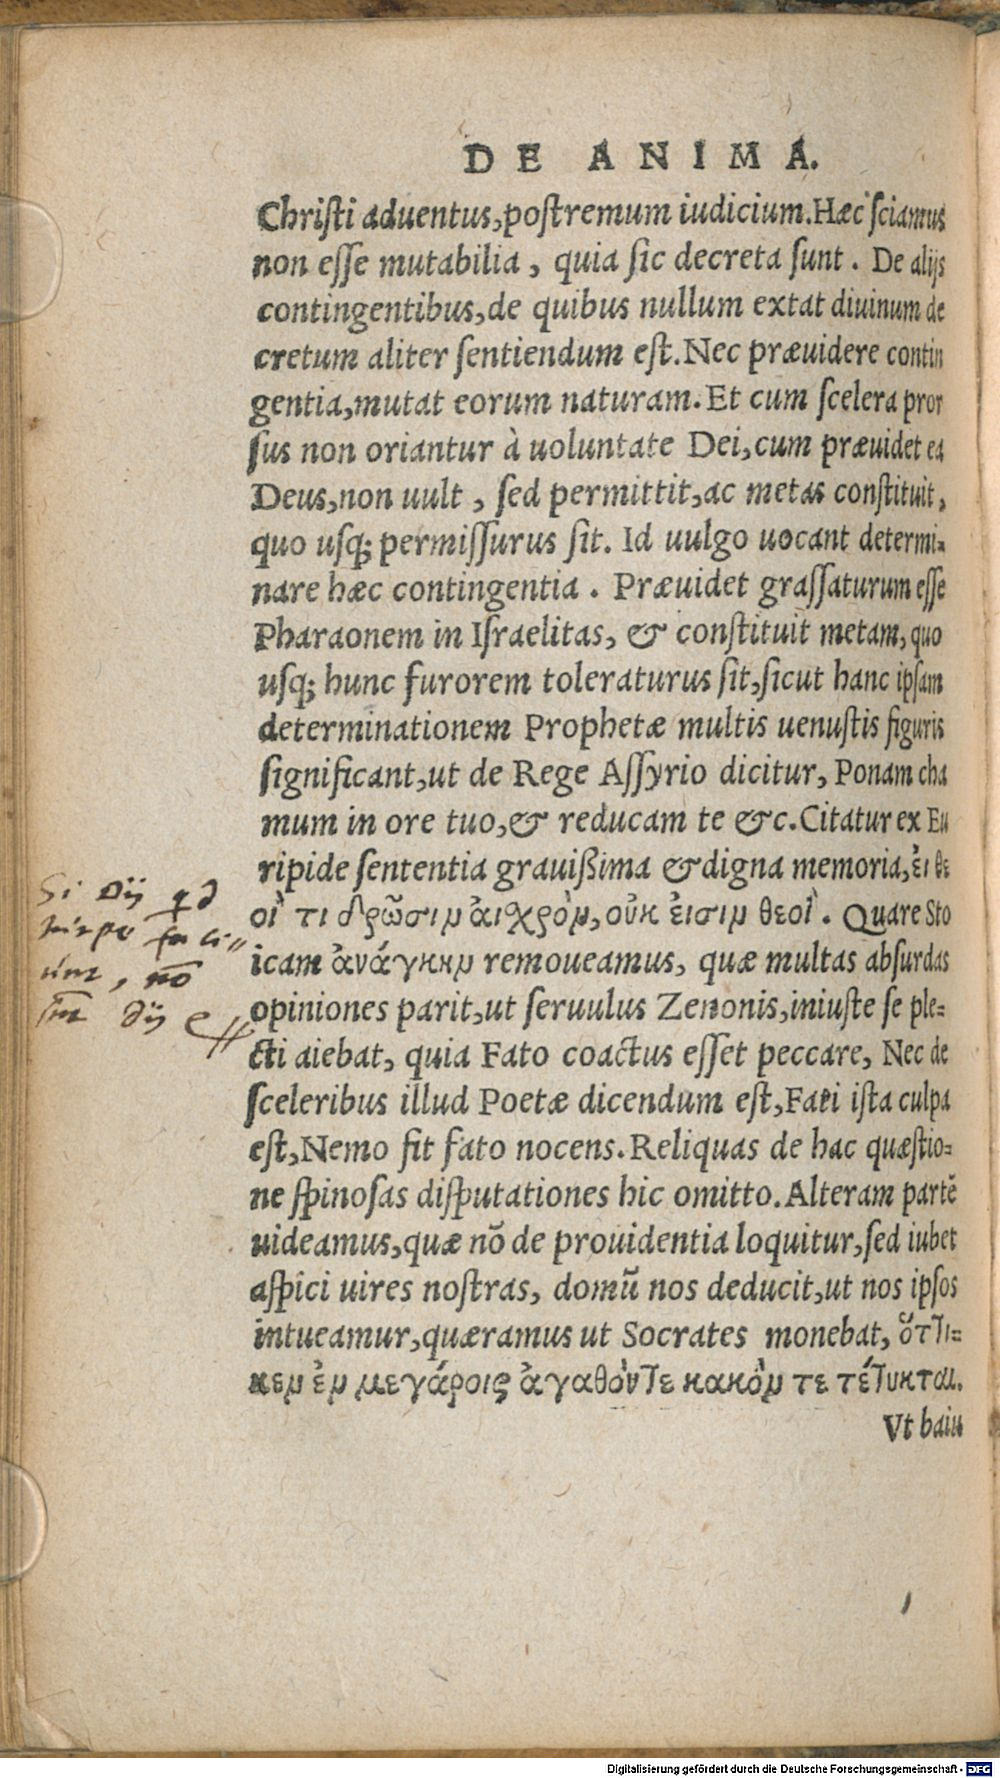 DE ANIMA.
Chriſti aduentus, poſtremum iudicium. Hæc ſciamus
non eſſe mutabilia, quia ſic decreta ſunt. De alijs
contingentibus, de quibus nullum extat diuinum de
cretum aliter ſentiendum eſt. Nec præuidere contin
gentia, mutat eorum naturam. Et cum ſcelera pror
ſus non oriantur à uoluntate Dei, cum præuidet ea
Deus, non uult, ſed permittit, ac metas conſtituit,
quo uſq; permiſſurus ſit. Id uulgo uocant determi-
nare hæc contingentia. Præuidet graſſaturum eſſe
Pharaonem in Iſraelitas, & conſtituit metam, quo
uſq; hunc furorem toleraturus ſit, ſicut hanc ipſam
determinationem Prophetæ multis uenuſtis figuris
ſignificant, ut de Rege Aſſyrio dicitur, Ponam cha
mum in ore tuo, & reducam te &c. Citatur ex Eu
ripide ſententia grauißima & digna memoria, ἐι θε
οί τι δρῶσιν ἀιχρὸν, οὐκ ἐισιν θεοί. Quare Sto
icam ἀνάγκην remoueamus, quæ multas abſurdas
opiniones parit, ut ſeruulus Zenonis, iniuſte ſe ple-
cti aiebat, quia Fato coactus eſſet peccare, Nec de
ſceleribus illud Poetæ dicendum eſt, Fati iſta culpa
eſt, Nemo fit fato nocens. Reliquas de hac quæſtio-
ne ſpinoſas diſputationes hic omitto. Alteram partẽ
uideamus, quæ nõ de prouidentia loquitur, ſed iubet
aſpici uires noſtras, domũ nos deducit, ut nos ipſos
intueamur, quæramus ut Socrates monebat, ὅττι-
κεν ἐν μεγάροις ἀγαθόντε κακὸν τε τέτυκται.
Vt baiu
Si Dij qd
turpe faci=
unt, nō
sūt dij
Digitalisierung gefördert durch die Deutsche Forschungsgemeinschaft - DFG